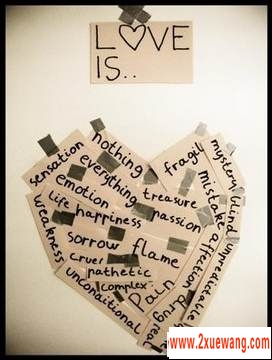 LOVE
IS..
nothing
sensation
everything
fragil
mystery
emotion
treasure
mistake
blind
life
happiness
passion
weakness
affection
unpredictable
sorrow
flame
cruel
pathetic
unconditional
complex
pain
drug
real
www.2xuewang.com